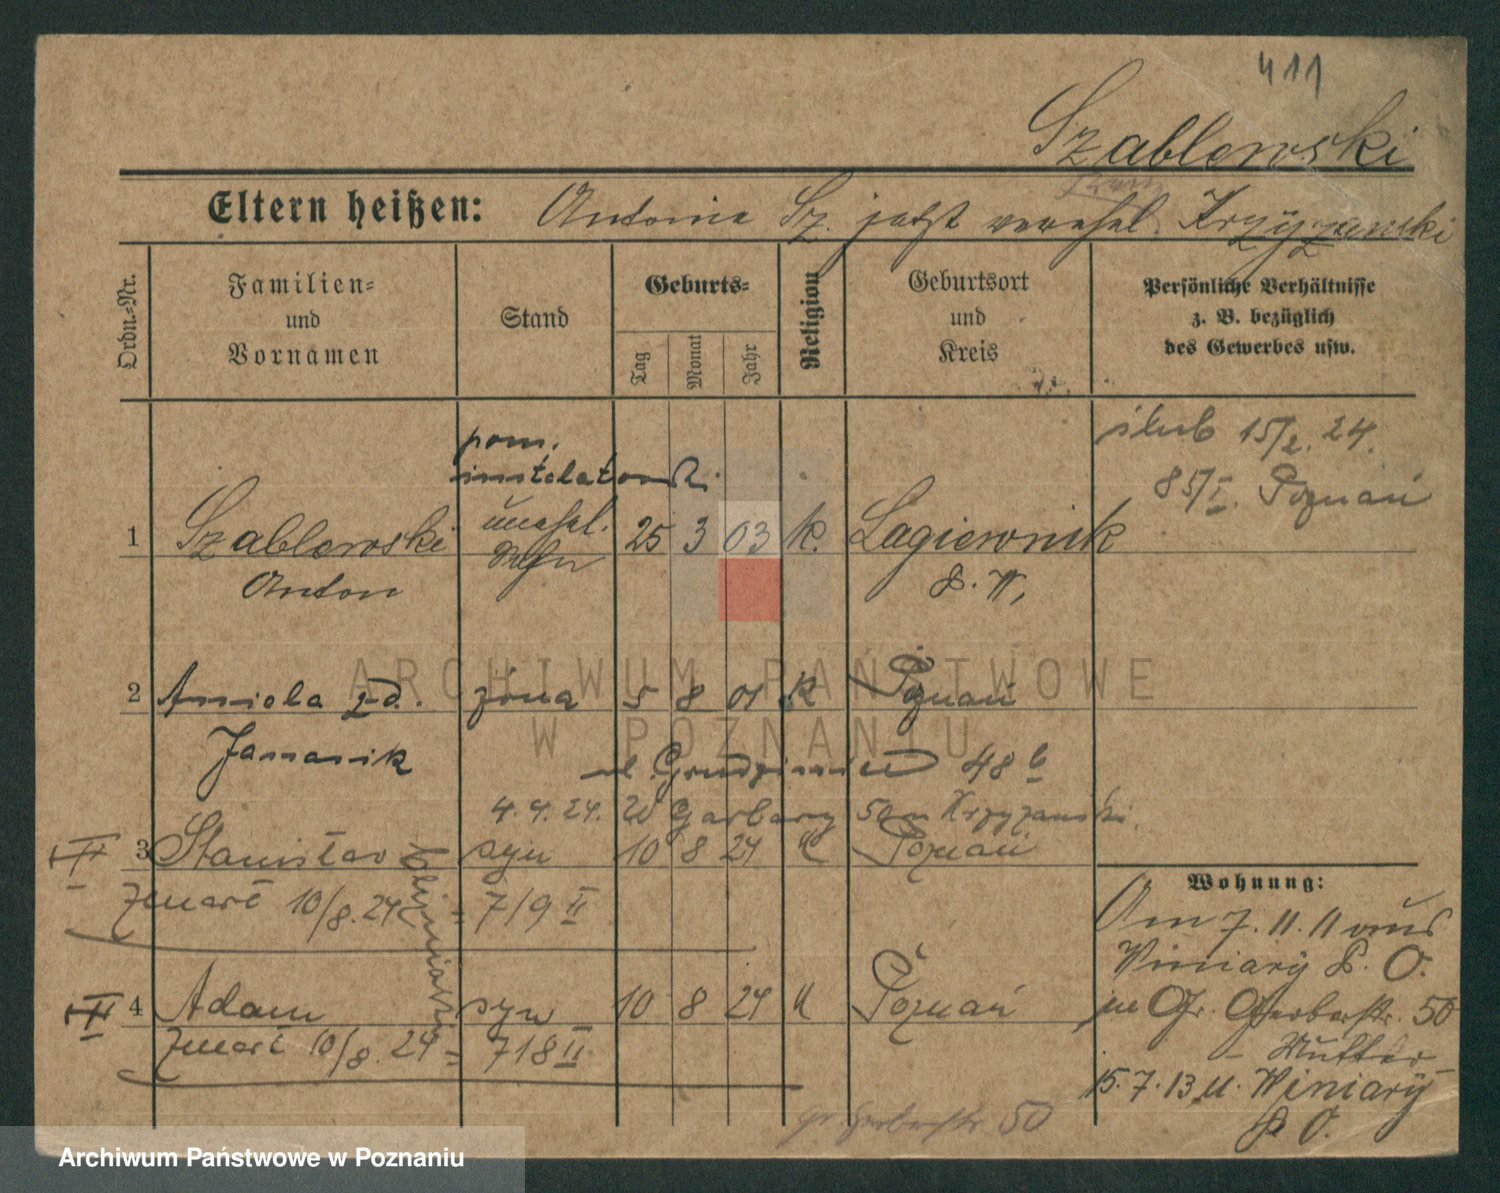 411
Szablewski
Eltern heißen: Antonie Sz. jetzt verehel. Krzyżanski
Ordn.-Nr.
Familien-
und
Vornamen
Stand
Geburts-
Tag
Monat
Jahr
Religion
Geburtsort
und
Kreis
Persönliche Verhältnisse
z. B. bezüglich
des Gewerbes usw.
pom.
instalatorski
ślub 15/2. 24.
85/I. Poznań
1 Szablewski unehel. 25 3 03 k. Lagiewnik
Anton Sohn P. W,
2 Aniola zd. żona 5 8 01 k Poznań
Janasik
ul. 48 b
4.4.24. W Garbary 50 Krzyżanski.
3 Stanisław syn 10 8 24 k Poznań
II
zmarł 10/8.24 = 7/9 II
bliźniaki
4 Adam syn 10 8 24 k Poznań
II
zmarł 10/8. 24 = 718 II
Wohnung:
Am 7. 11. 11 aus
Winiary P. O.
in Gr. Gerberstr. 50
- Mutter
15. 7. 13 n. Winiary
P. O.
Gr Gerberstr. 50
ARCHIWUM PAŃSTWOWE
W POZNANIU
Archiwum Państwowe w Poznaniu